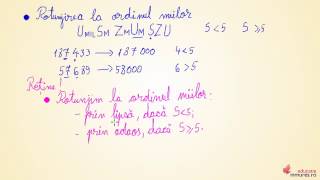 Rotunjirea la ordinul miilor
UmilSm ZmUm SZU S<5 S≥5
187 433 → 187 000 4<5
57 689 → 58000 6>5
Reține!
Rotunjim la ordinul miilor:
- prin lipsă, dacă S<5;
- prin adaos, dacă S≥5.
educatie
inmures.ro